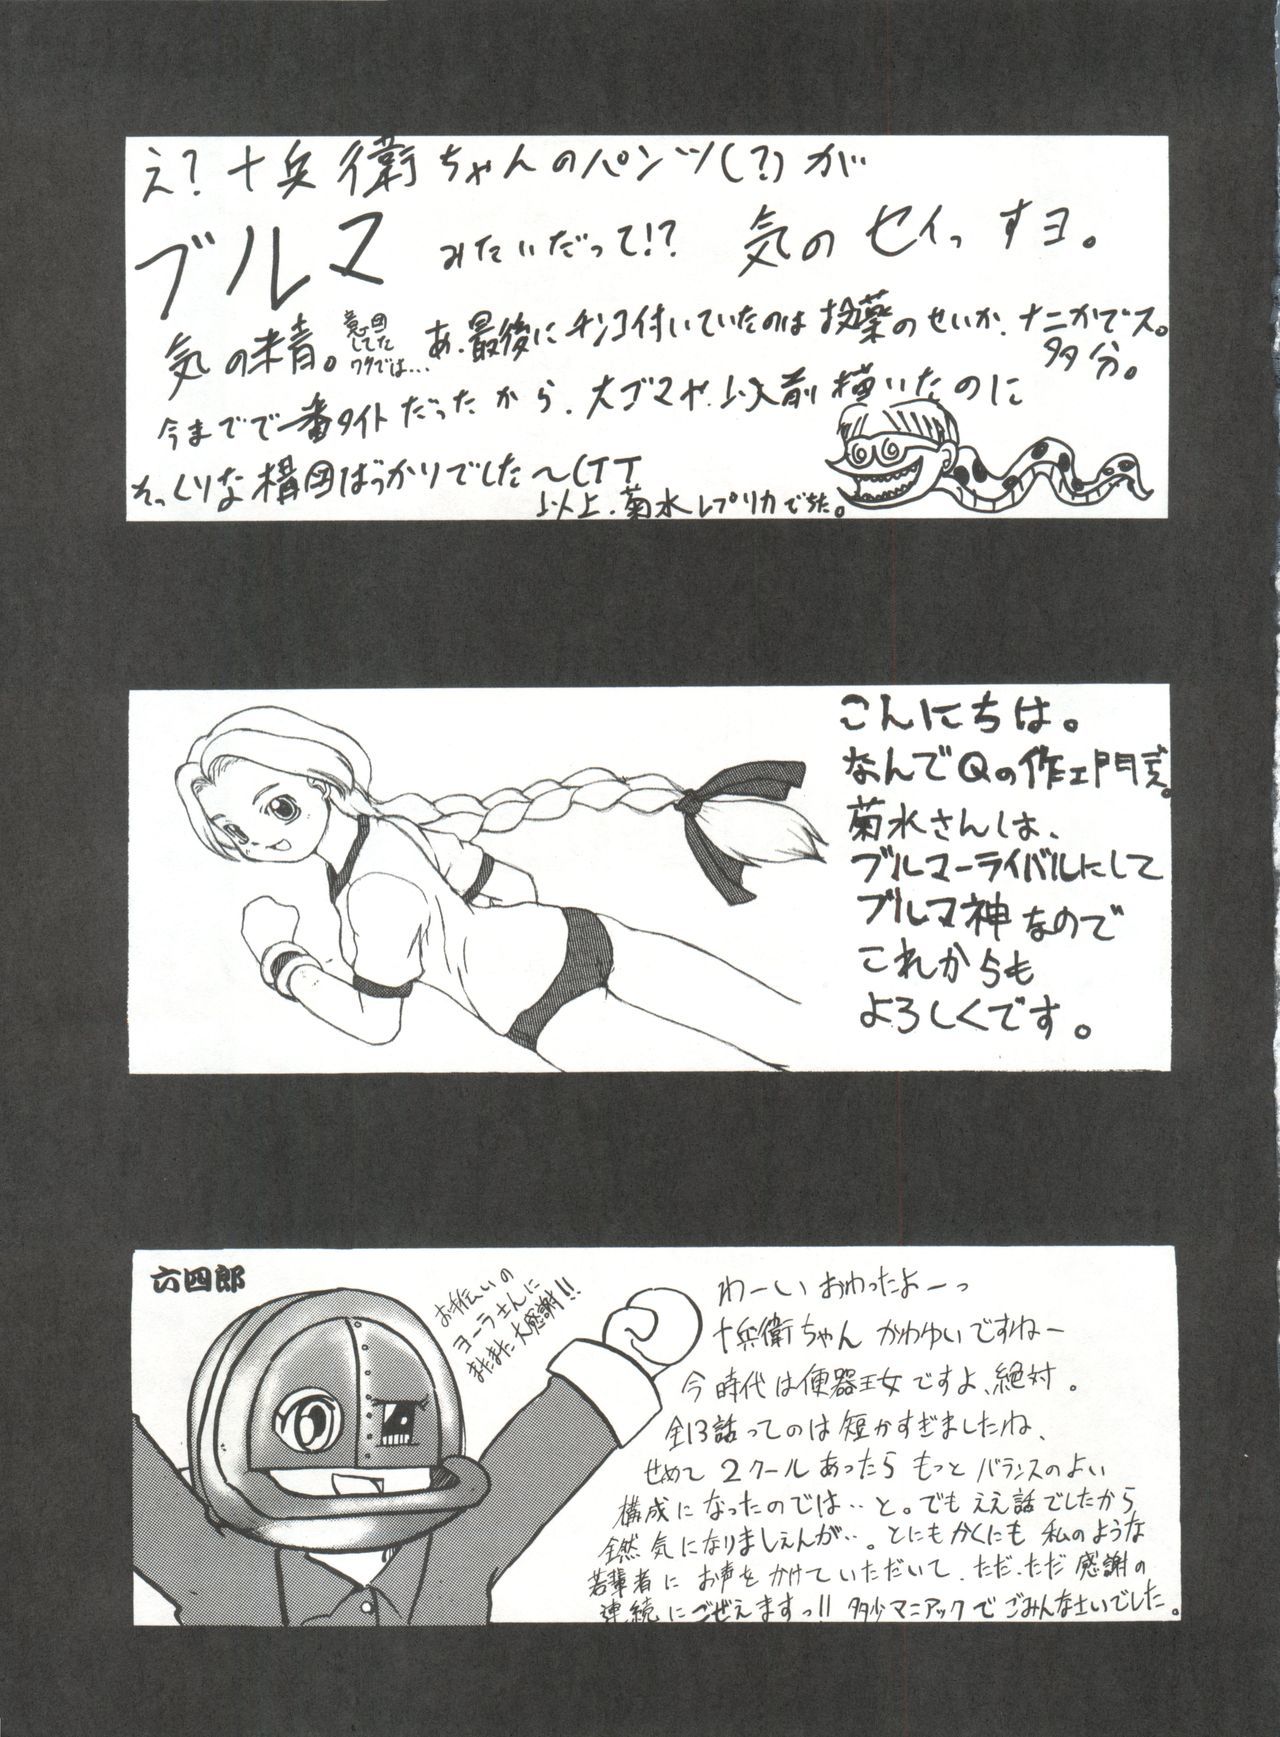 え?十兵衛ちゃんのパンツ(?)が
ブルマ みたいだって!? 気のセイっすヨ。
気の精。
意図
してた
ワケでは…
あ、最後にチンコ付いていたのは投薬のせいか、ナニかでス。
多分。
今までで一番タイトだったから、大ゴマや、以前描いたのに
そっくりな構図ばっかりでした〜(TT
以上、菊水レプリカでちた。
こんにちは。
なんでQの作エ門デス。
菊水さんは、
ブルマーライバルにして
ブルマ神なので
これからも
よろしくです。
六四郎
お手伝いの
ヨーラさんに
またまた大感謝!!
わーい おわったよーっ
十兵衛ちゃん かわゆいですねー
今時代は便器王女ですよ、絶対。
全13話ってのは短かすぎましたね、
せめて2クールあったら もっと バランスのよい
構成になったのでは‥と。でもええ話でしたから
全然気になりましぇんが‥。とにもかくにも 私のような
若輩者に お声をかけていただいて、ただ、ただ 感謝の
連続にごぜえますっ!! 多少マニアックでごみんなさいでした。